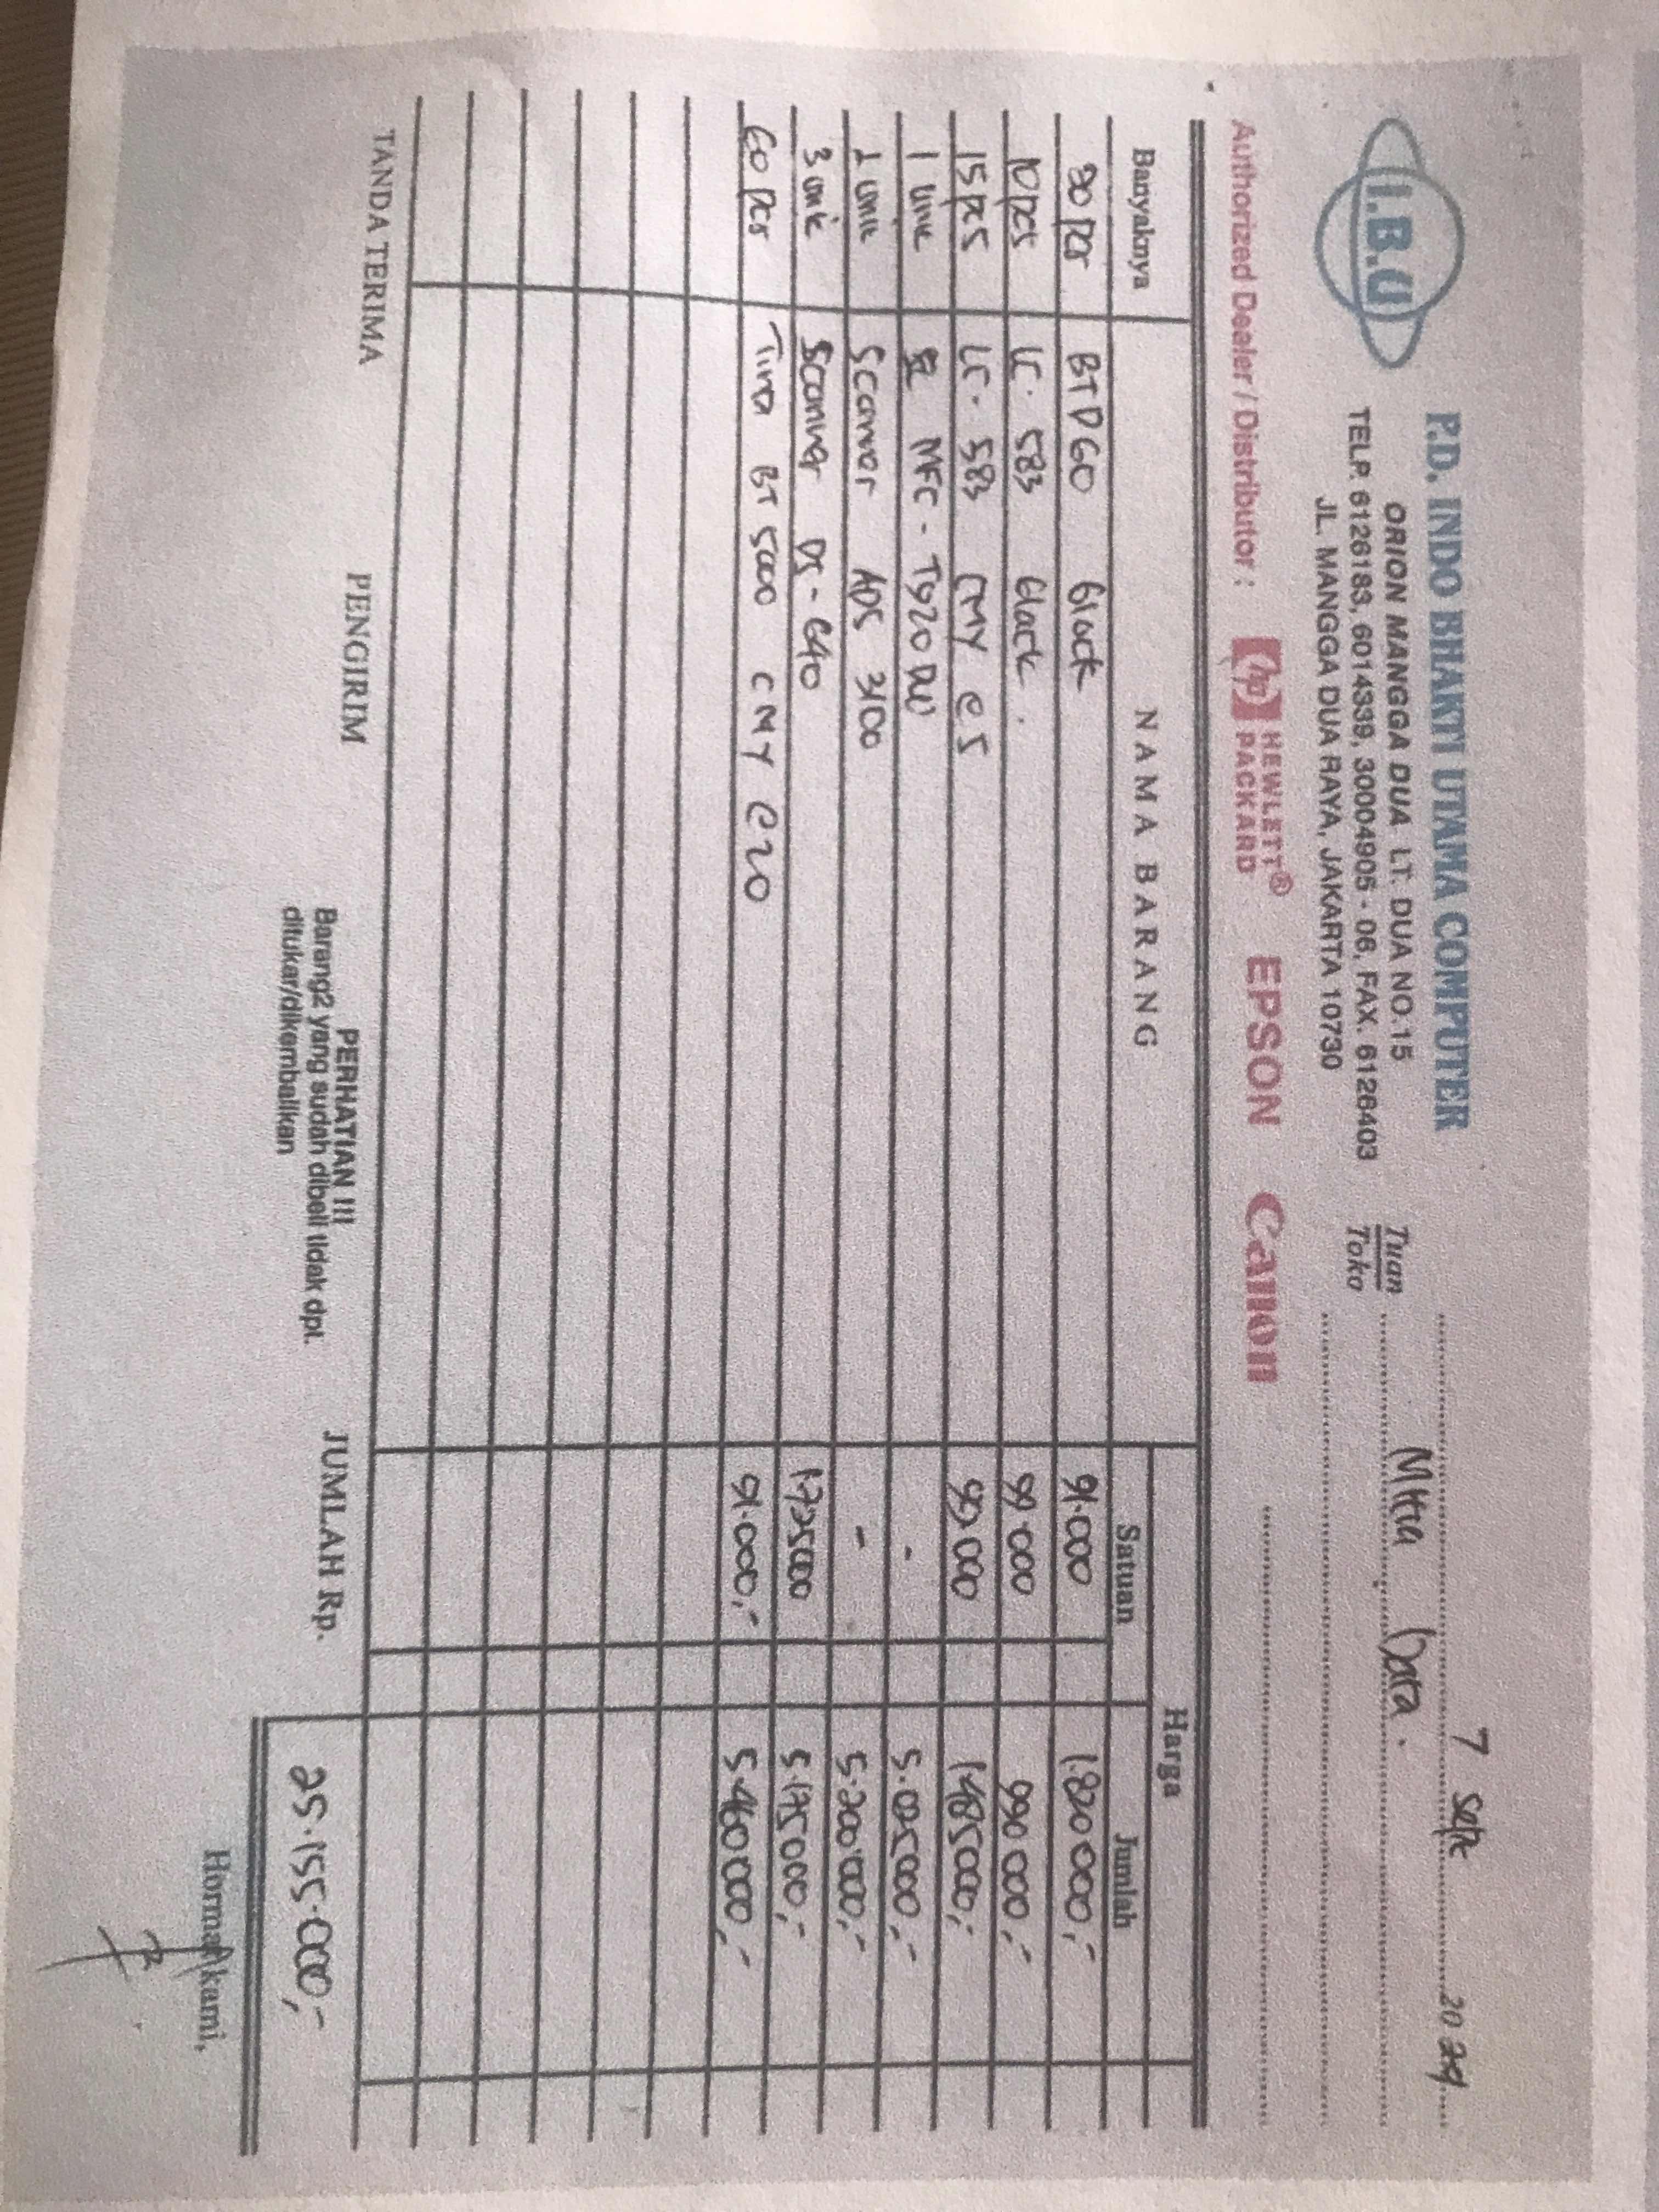 I.B.U
P.D. INDO BHAKTI UTAMA COMPUTER
ORION MANGGA DUA LT. DUA NO.15
TELP. 6126183, 6014339, 30004905 - 06, FAX. 6126403
JL. MANGGA DUA RAYA, JAKARTA 10730
7 Sept 2024
Tuan
Toko
Mitra Data.
Authorized Dealer / Distributor : hp HEWLETT® PACKARD EPSON Canon
Banyaknya NAMA BARANG Harga
Satuan Jumlah
pcs BTD60 black 91.000 1.820.000,-
10 pcs LC. 583 black. 99.000 990.000,-
15 pcs LC - 583 CMY @ 5 99.000 1.485.000,-
1 unit MFC - T920DW - 5.025.000,-
1 unit Scanner ADS 3100 - 5.200.000,-
3 unit Scanner DS - 640 1.725.000 5.175.000,-
60 pcs Tinta BT 5000 CMY @ 20 91.000,- 5.460.000,-
TANDA TERIMA PENGIRIM
PERHATIAN !!!
Barang2 yang sudah dibeli tidak dpt.
ditukar/dikembalikan
JUMLAH Rp. 25.155.000,-
Hormat kami,